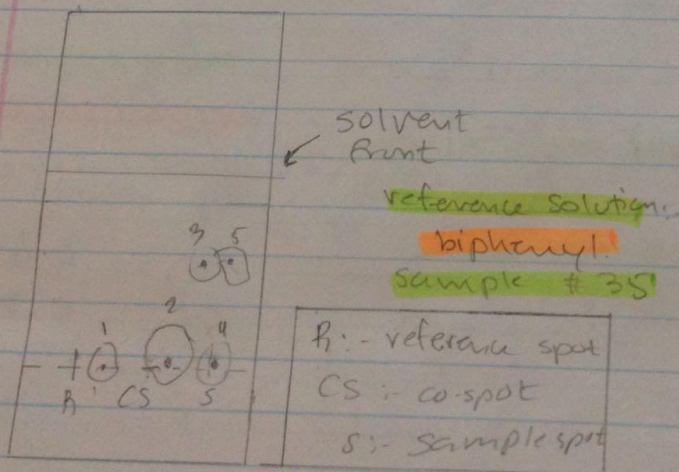 solvent
front
reference solution:
biphenyl.
sample # 35
3 5
2
1 4
R CS S
R:- reference spot
CS :- co-spot
S:- sample spot